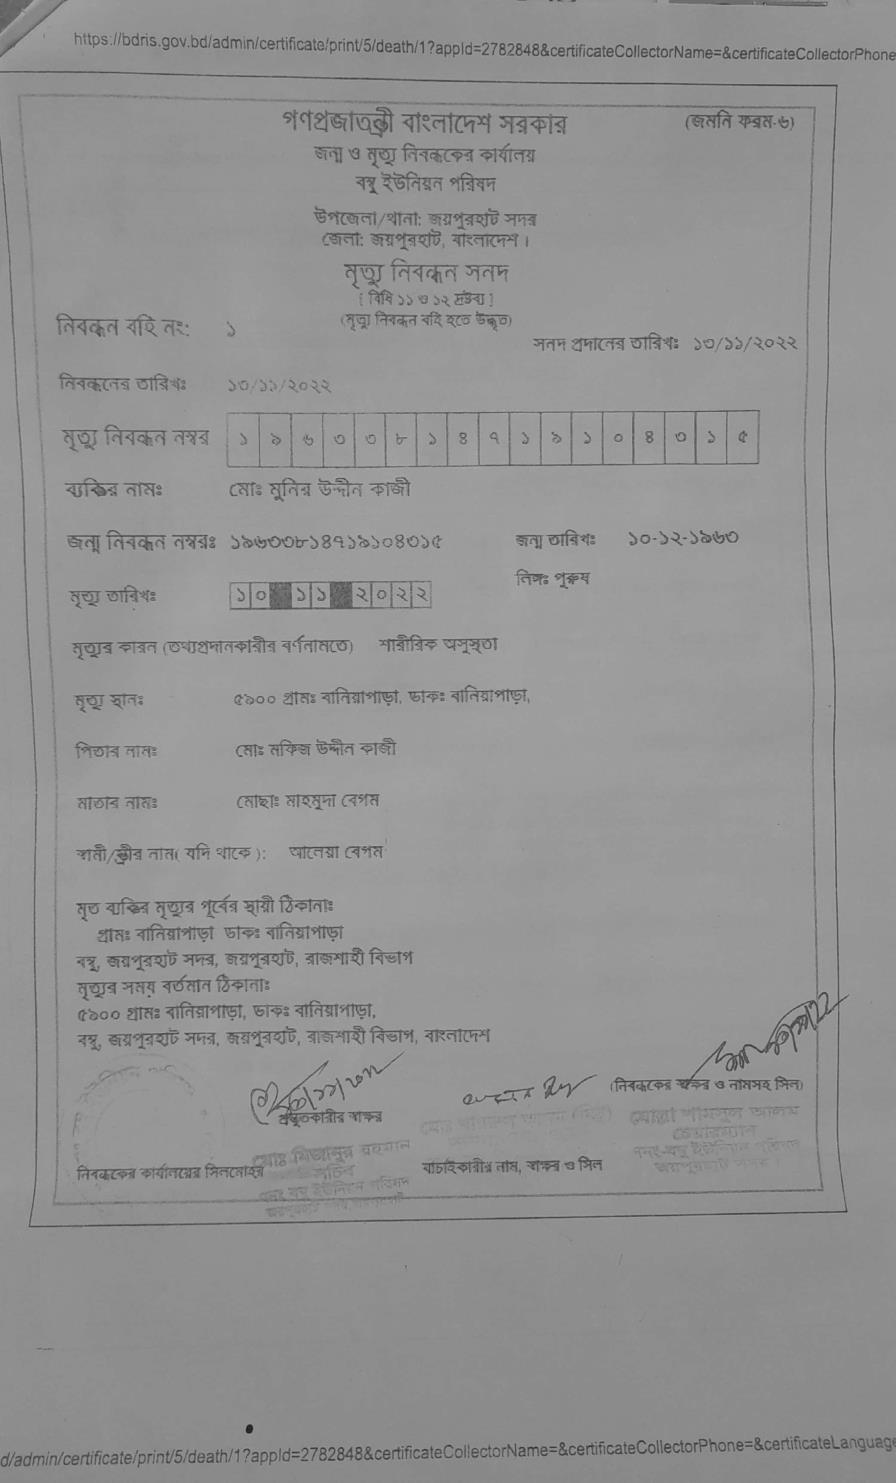 https://bdris.gov.bd/admin/certificate/print/5/death/1?appId=2782848&certificateCollectorName=&certificateCollectorPhone
গণপ্রজাতন্ত্রী বাংলাদেশ সরকার (জমনি ফরম-৬)
জন্ম ও মৃত্যু নিবন্ধকের কার্যালয়
বম্বু ইউনিয়ন পরিষদ
উপজেলা/থানা: জয়পুরহাট সদর
জেলা: জয়পুরহাট, বাংলাদেশ।
মৃত্যু নিবন্ধন সনদ
[ বিধি ১১ ও ১২ দ্রষ্টব্য ]
(মৃত্যু নিবন্ধন বহি হতে উদ্ধৃত)
নিবন্ধন বহি নং: ১
সনদ প্রদানের তারিখঃ ১৩/১১/২০২২
নিবন্ধনের তারিখঃ ১৩/১১/২০২২
মৃত্যু নিবন্ধন নম্বর ১ ৯ ৬ ৩ ৩ ৮ ১ ৪ ৭ ১ ৯ ১ ০ ৪ ৩ ১ ৫
ব্যক্তির নামঃ মোঃ মুনির উদ্দীন কাজী
জন্ম নিবন্ধন নম্বরঃ ১৯৬৩৩৮১৪৭১৯১০৪৩১৫ জন্ম তারিখঃ ১০-১২-১৯৬৩
লিঙ্গঃ পুরুষ
মৃত্যু তারিখঃ ১০ ১১ ২০২২
মৃত্যুর কারন (তথ্যপ্রদানকারীর বর্ণনামতে) শারীরিক অসুস্থতা
মৃত্যু স্থানঃ ৫৯০০ গ্রামঃ বানিয়াপাড়া, ডাকঃ বানিয়াপাড়া,
পিতার নামঃ মোঃ মফিজ উদ্দীন কাজী
মাতার নামঃ মোছাঃ মাহমুদা বেগম
স্বামী/স্ত্রীর নাম( যদি থাকে ): আলেয়া বেগম
মৃত ব্যক্তির মৃত্যুর পূর্বের স্থায়ী ঠিকানাঃ
গ্রামঃ বানিয়াপাড়া ডাকঃ বানিয়াপাড়া
বম্বু, জয়পুরহাট সদর, জয়পুরহাট, রাজশাহী বিভাগ
মৃত্যুর সময় বর্তমান ঠিকানাঃ
৫৯০০ গ্রামঃ বানিয়াপাড়া, ডাকঃ বানিয়াপাড়া,
বম্বু, জয়পুরহাট সদর, জয়পুরহাট, রাজশাহী বিভাগ, বাংলাদেশ
(নিবন্ধকের স্বাক্ষর ও নামসহ সিল)
প্রস্তুতকারীর স্বাক্ষর
মোঃ মিজানুর রহমান
সচিব
মোল্লা শামসুল আলম
চেয়ারম্যান
নিবন্ধকের কার্যালয়ের সিলমোহর
যাচাইকারীর নাম, স্বাক্ষর ও সিল
d/admin/certificate/print/5/death/1?appId=2782848&certificateCollectorName=&certificateCollectorPhone=&certificateLanguage